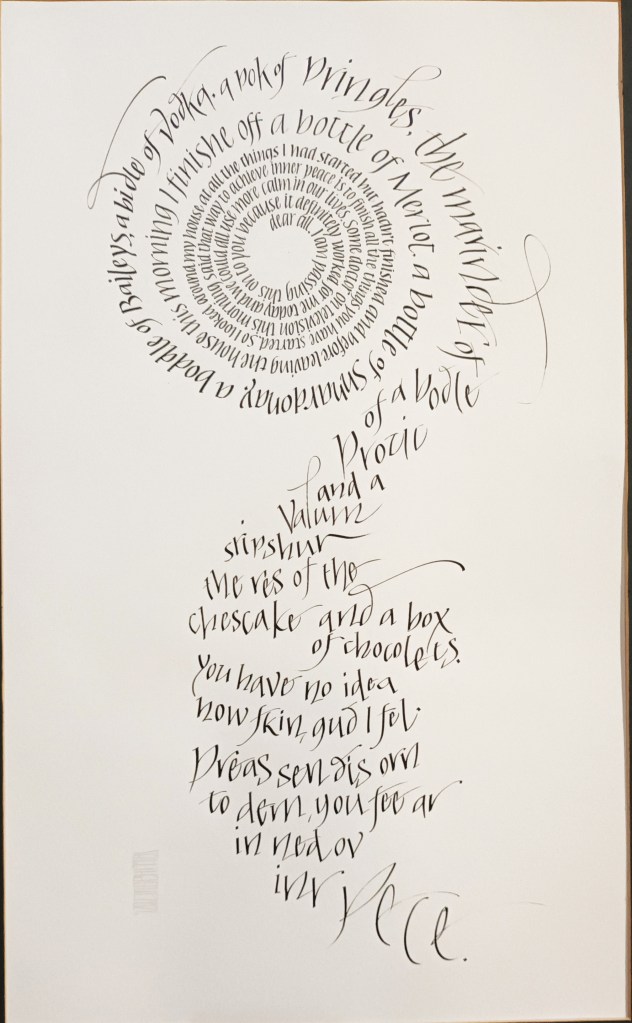 dear all, I am passing this on to you because it definitely worked for me today and we could all use more calm in our lives. Some doctor on television this morning said that way to achieve inner peace is to finish all the things you have started. so I looked around my house at all the things I had started but hadn't finished and before leaving the house this morning I finishe off a bottle of Merlot. a bottle of Shhardonay, a boddle of Baileys, a bidle of vodka. a pok of Pringles, the marinder of
of a bodle
Prozic
and a
Valum
sripshur
the res of the
chescake and a box
of chocolets.
You have no idea
how fkin, gud I fel.
Preas sen dis orn
to dem, you fee ar
in ned ov
inr Pece.